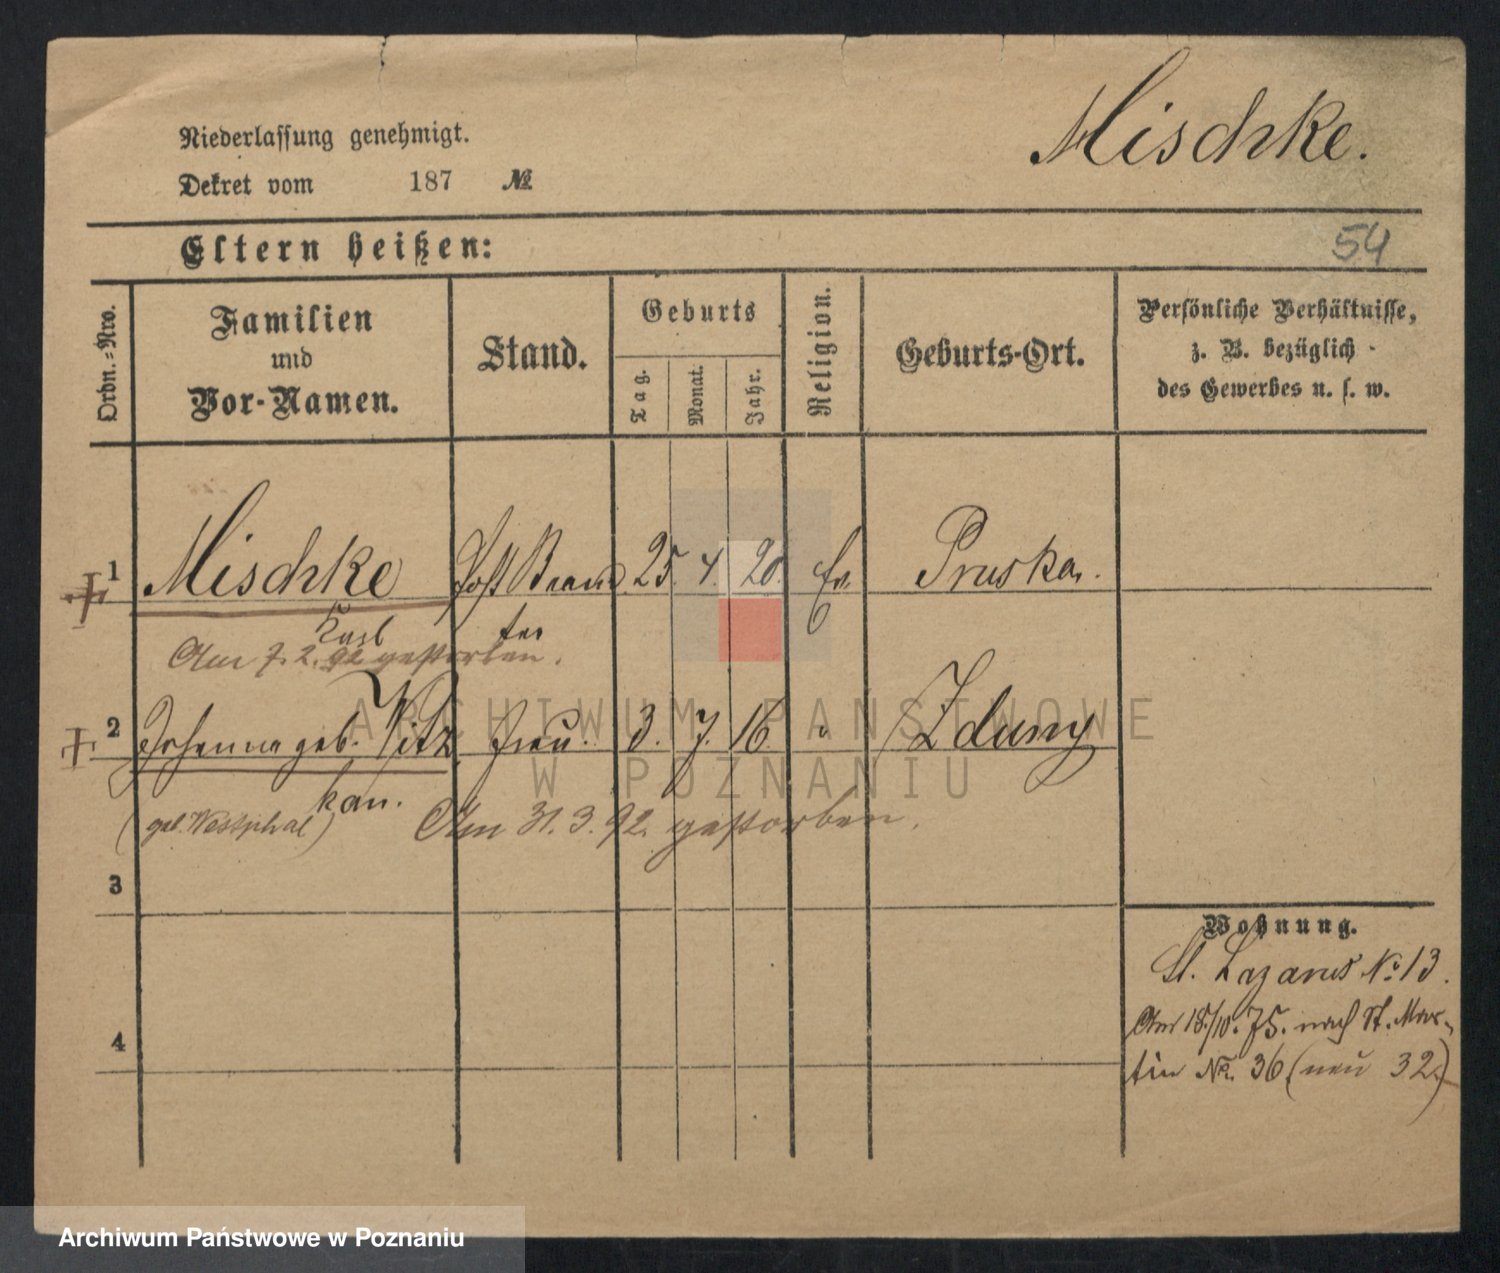 Mischke.
Niederlassung genehmigt.
Dekret vom 187 №
Eltern heißen:
54
Ordn.-Nro.
Familien
und
Vor-Namen.
Stand.
Geburts
Tag.
Monat.
Jahr.
Religion.
Geburts-Ort.
Persönliche Verhältnisse,
z. B. bezüglich
des Gewerbes u. s. w.
1 Mischke 25. 4. 20. Ev. Pruska.
Karl
Am 7. 2. 92 gestorben.
2 Johanna geb. Witz Frau. 3. 7. 16. Zduny
kau.
(geb. Westphal) Am 31. 3. 92. gestorben.
3
4
Wohnung.
St. Lazarus No 13.
Am 18/10. 75. nach St. Mar-
tin No. 36 (neu 32)
ARCHIWUM PAŃSTWOWE
W POZNANIU
Archiwum Państwowe w Poznaniu